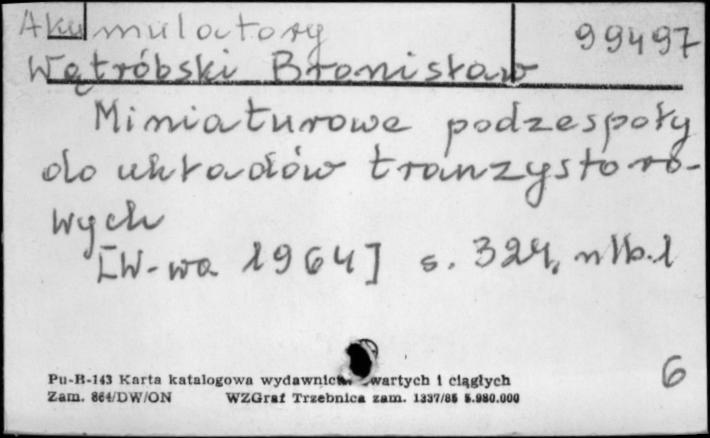 Akumulatory 99497
Wątróbski Bronisław
Miniaturowe podzespoły
do układów tranzystoro-
wych
[W-wa 1964] s. 324, nlb. 1
6
Pu-B-143 Karta katalogowa wydawnictw zwartych i ciągłych
Zam. 864/DW/ON WZGraf Trzebnica zam. 1337/85 5.980.000